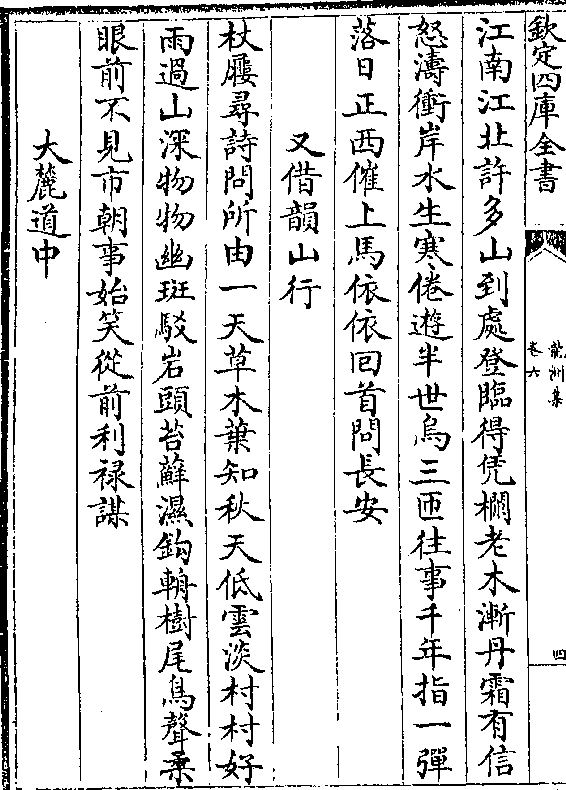 欽定四庫全書
龍洲集
卷六
四
江南江北許多山到處登臨得凭欄老木漸丹霜有信
怒濤衝岸水生寒倦遊半世烏三匝往事千年指一彈
落日正西催上馬依依回首問長安
又借韻山行
杖屨尋詩問所由一天草木葉知秋天低雲淡村村好
雨過山深物物幽斑駁岩頭苔蘚濕鈎輈樹尾鳥聲柔
眼前不見市朝事始笑從前利祿謀
大麓道中